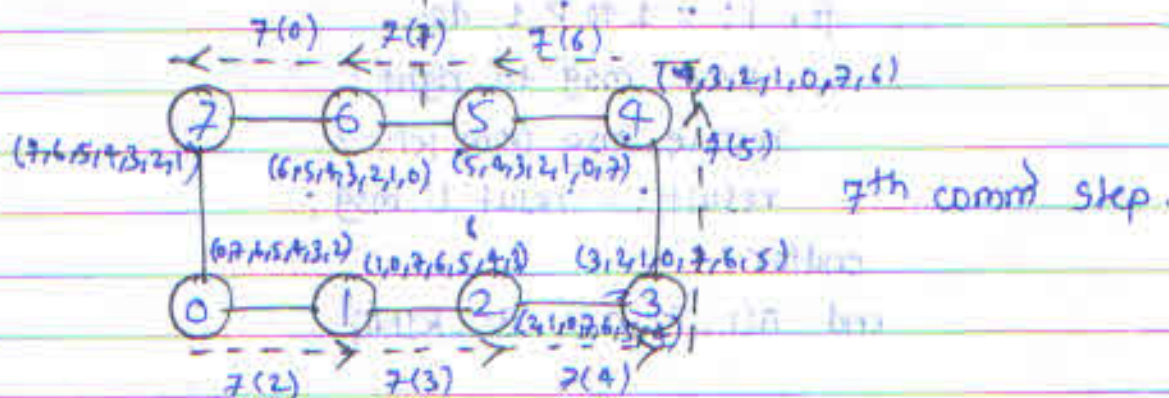 7(0) 7(7) 7(6)
(4,3,2,1,0,7,6)
7 6 5 4
(7,6,5,4,3,2,1) (6,5,4,3,2,1,0) (5,4,3,2,1,0,7) 7(5)
7th comm step.
(0,7,6,5,4,3,2) (1,0,7,6,5,4,3) (3,2,1,0,7,6,5)
0 1 2 3
7(2) 7(3) 7(4)